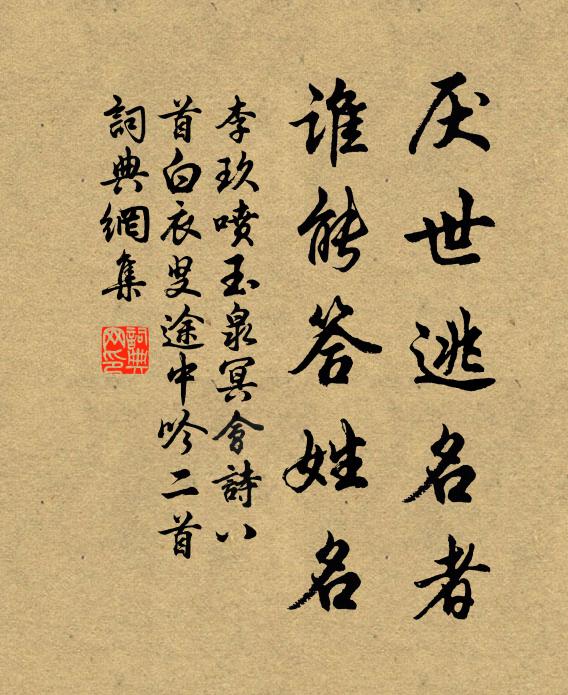 厌世逃名者
谁能答姓名
李玖喷玉泉冥會詩八
首白衣叟途中吟二首
詞典網集
詞典网印